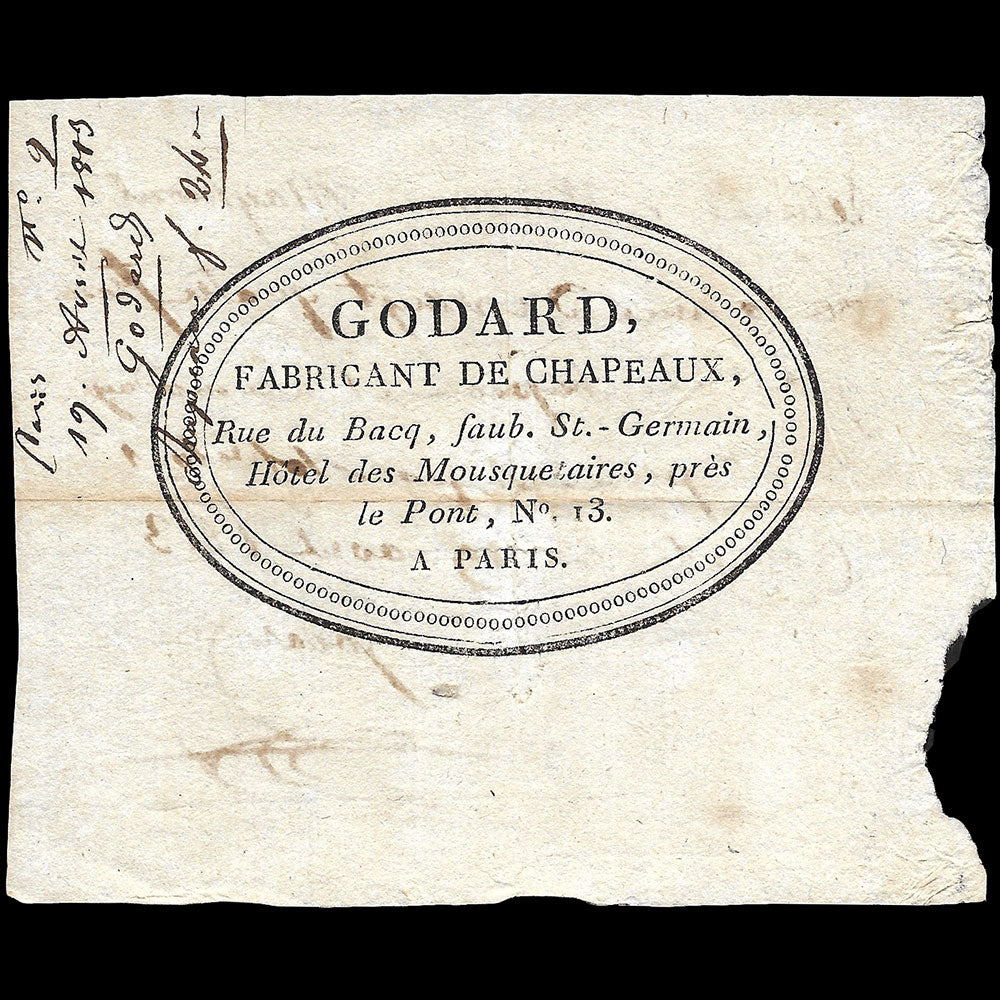 GODARD,
FABRICANT DE CHAPEAUX,
Rue du Bacq, faub. St.-Germain,
Hôtel des Mousquetaires, près
le Pont, Nº. 13.
A PARIS.
Paris Nº. 2
19.
Godard
f. 24